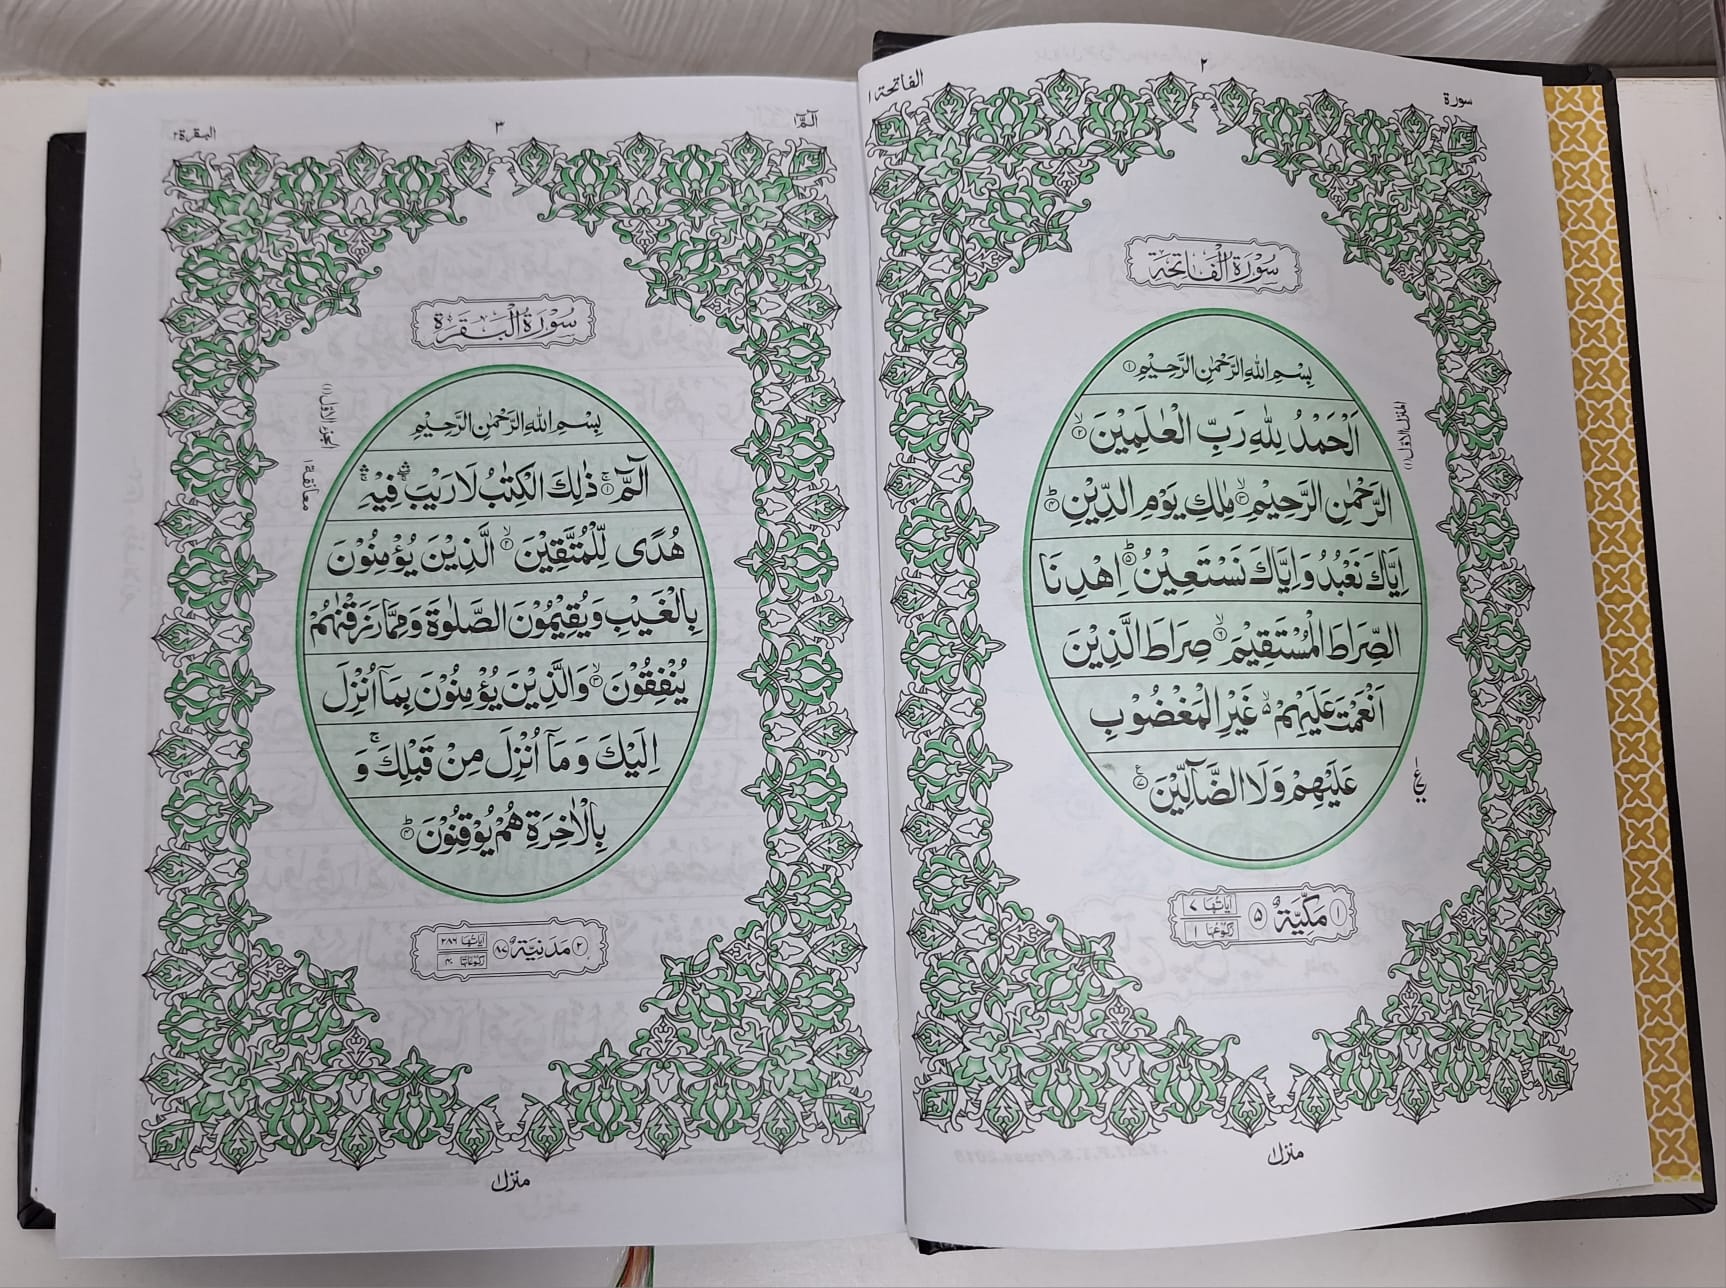 سورة
٢
الفاتحة ١
سُوْرَةُ الْفَاتِحَةِ
بِسْمِ اللّٰهِ الرَّحْمٰنِ الرَّحِيْمِ ①
اَلْحَمْدُ لِلّٰهِ رَبِّ الْعٰلَمِيْنَ ۙ②
الرَّحْمٰنِ الرَّحِيْمِ ۙ③ مٰلِكِ يَوْمِ الدِّيْنِ ؕ④
اِيَّاكَ نَعْبُدُ وَاِيَّاكَ نَسْتَعِيْنُ ؕ⑤ اِهْدِنَا
الصِّرَاطَ الْمُسْتَقِيْمَ ۙ⑥ صِرَاطَ الَّذِيْنَ
اَنْعَمْتَ عَلَيْهِمْ ۙ۬ غَيْرِ الْمَغْضُوْبِ
عَلَيْهِمْ وَلَا الضَّآلِّيْنَ ⑦
المنزل الاوّل (١)
١ مَكِّيَّةٌ ٥
اٰيَاتُهَا ٧
رُكُوْعُهَا ١
منزل ١
الٓمّٓ ١
٣
البقرة ٢
سُوْرَةُ الْبَقَرَةِ
بِسْمِ اللّٰهِ الرَّحْمٰنِ الرَّحِيْمِ
الٓمّٓ ۚ① ذٰلِكَ الْكِتٰبُ لَا رَيْبَ ۛۖ فِيْهِ ۛۚ
هُدًى لِّلْمُتَّقِيْنَ ۙ② الَّذِيْنَ يُؤْمِنُوْنَ
بِالْغَيْبِ وَيُقِيْمُوْنَ الصَّلٰوةَ وَمِمَّا رَزَقْنٰهُمْ
يُنْفِقُوْنَ ۙ③ وَالَّذِيْنَ يُؤْمِنُوْنَ بِمَآ اُنْزِلَ
اِلَيْكَ وَمَآ اُنْزِلَ مِنْ قَبْلِكَ ۚ وَ
بِالْاٰخِرَةِ هُمْ يُوْقِنُوْنَ ؕ④
الجزء الاوّل (١)
معانقة ١
٢ مَدَنِيَّةٌ ٨٧
اٰيَاتُهَا ٢٨٦
رُكُوْعَاتُهَا ٤٠
منزل ١